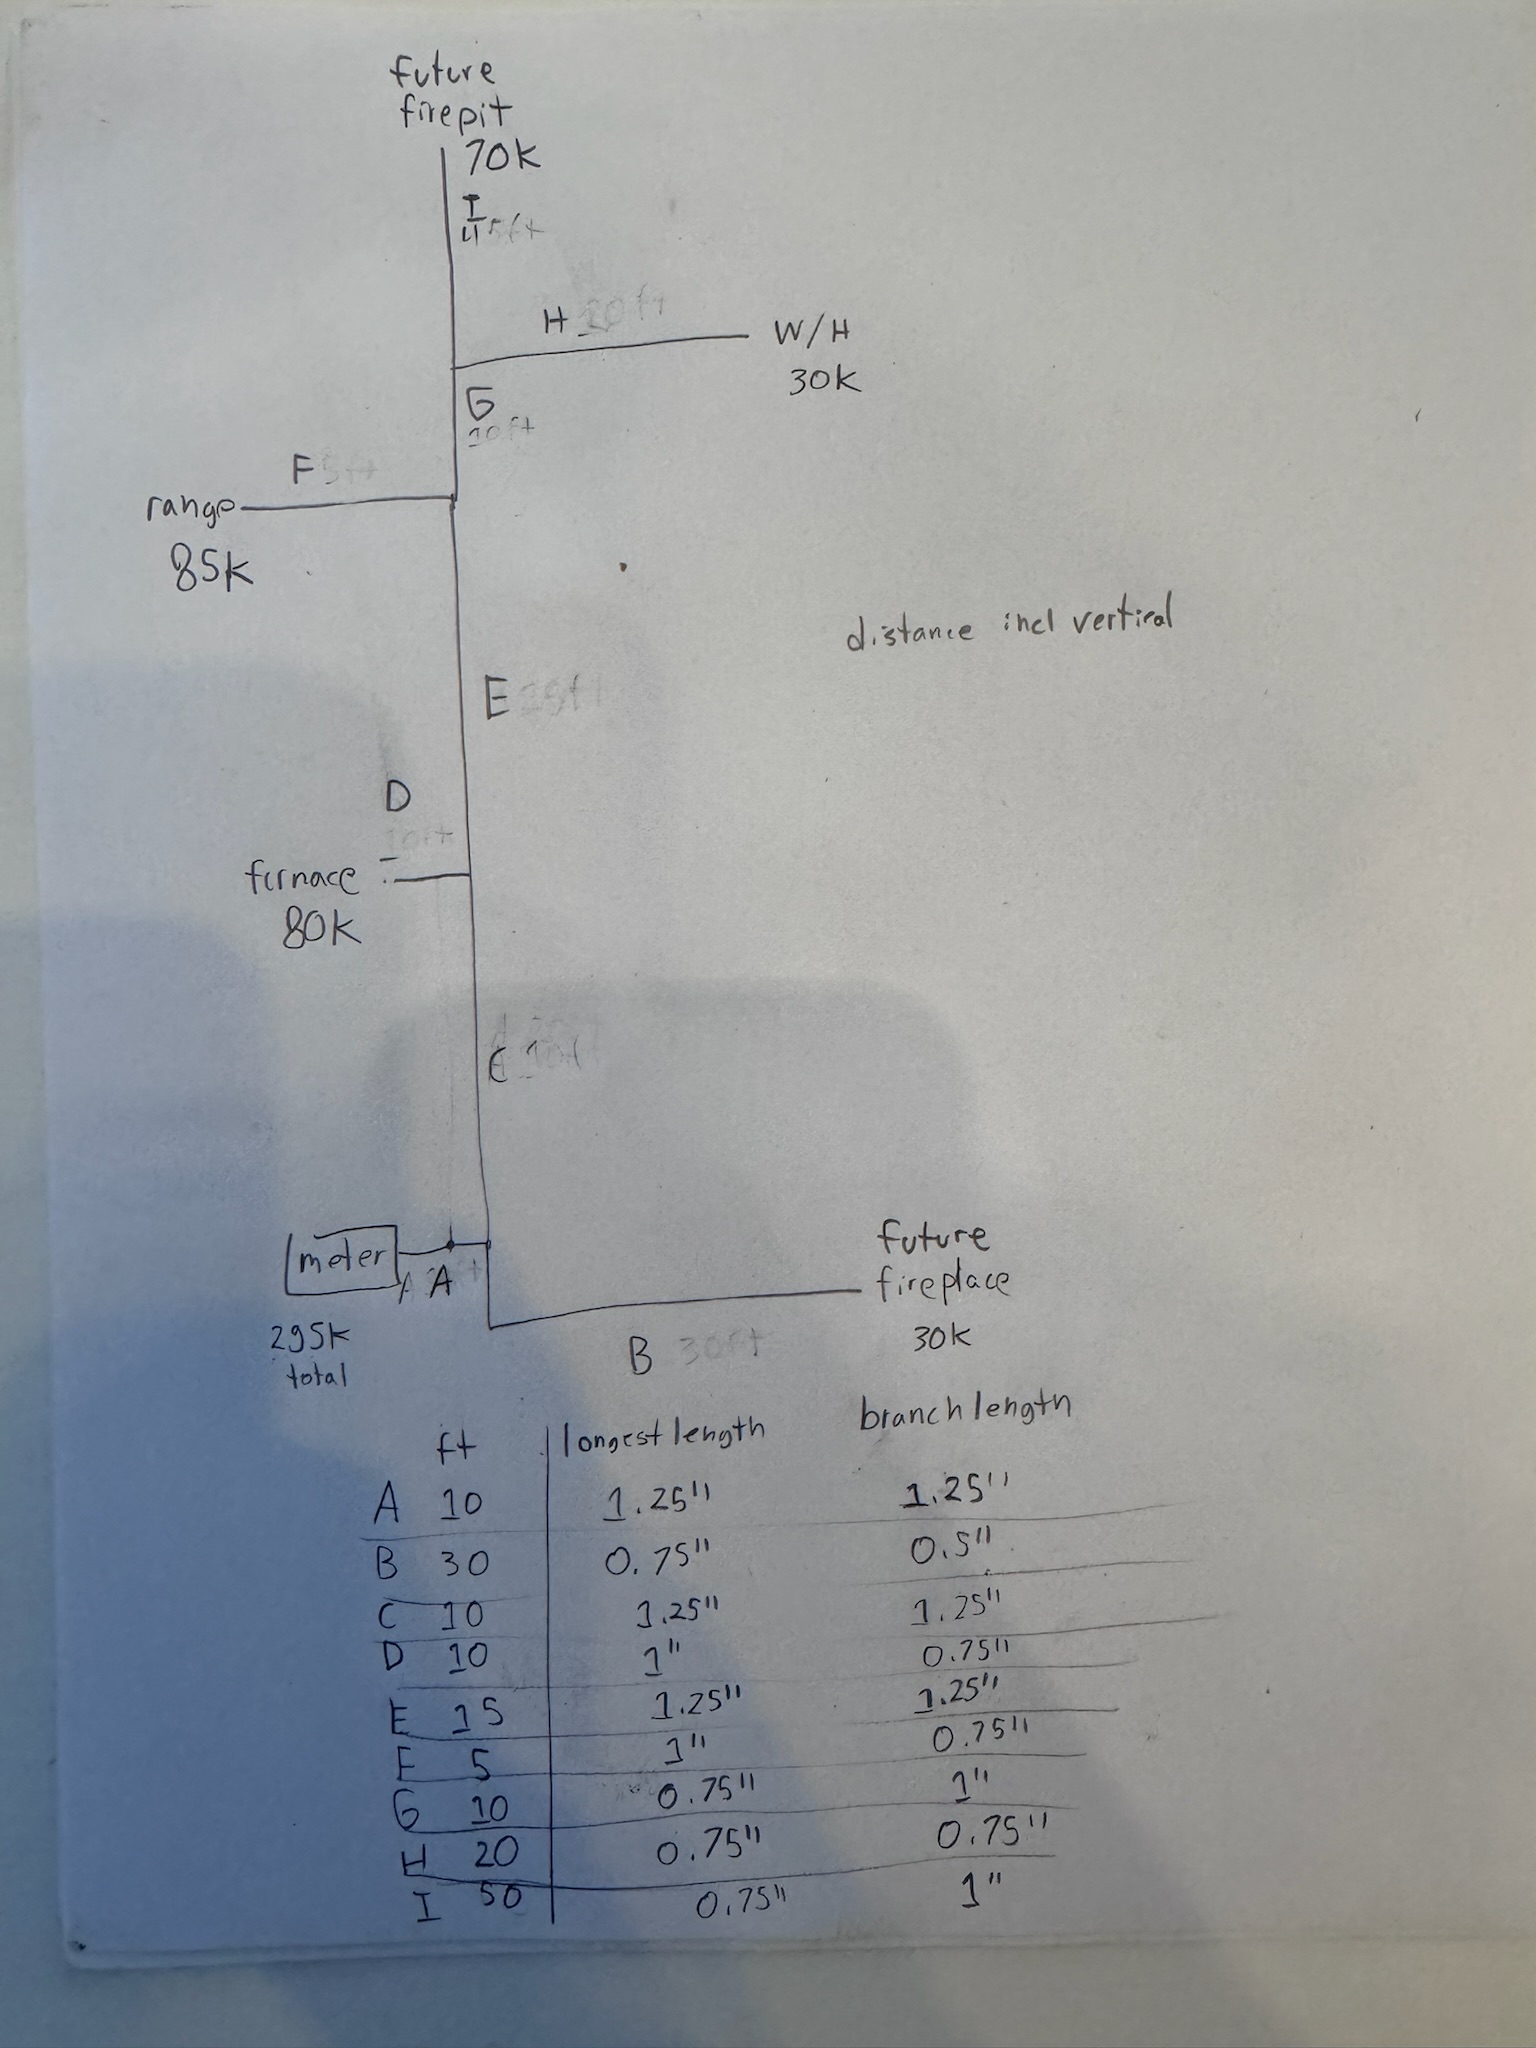 future
firepit
70K
I
H 20ft
W/H
30K
G
10ft
F 5ft
range
85K
distance incl vertical
E
D
10ft
furnace
80K
C 10ft
meter
A
future
fireplace
30K
B 30ft
295K
total
ft longest length branch length
A 10 1.25" 1.25"
B 30 0.75" 0.5"
C 10 1.25" 1.25"
D 10 1" 0.75"
E 15 1.25" 1.25"
F 5 1" 0.75"
G 10 0.75" 1"
H 20 0.75" 0.75"
I 50 0.75" 1"